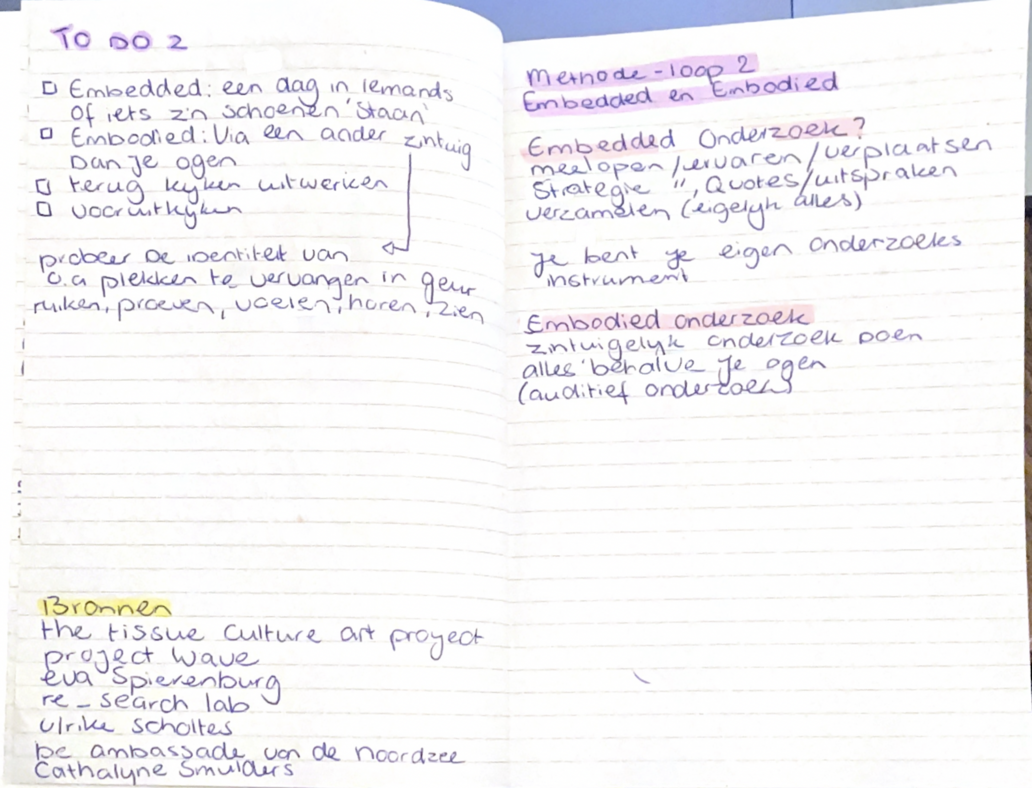 TO DO 2
Embedded: een dag in iemands
of iets z'n schoenen 'staan'
Embodied: Via een ander zintuig
Dan je ogen
terug kijken uitwerken
vooruitkijken
probeer De identiteit van
o.a plekken te vervangen in geur
ruiken, proeven, voelen, horen, zien
Bronnen
the tissue culture art project
project wave
eva Spierenburg
re_search lab
ulrike scholtes
De ambassade van de noordzee
Cathalyne Smulders
Methode-loop 2
Embedded en Embodied
Embedded Onderzoek?
meelopen/ervaren/verplaatsen
Strategie ", Quotes/uitspraken
verzamelen (eigelijk alles)
Je bent je eigen onderzoeks
instrument
Embodied onderzoek
zintuigelijk onderzoek Doen
alles behalve je ogen
(auditief onderzoek)